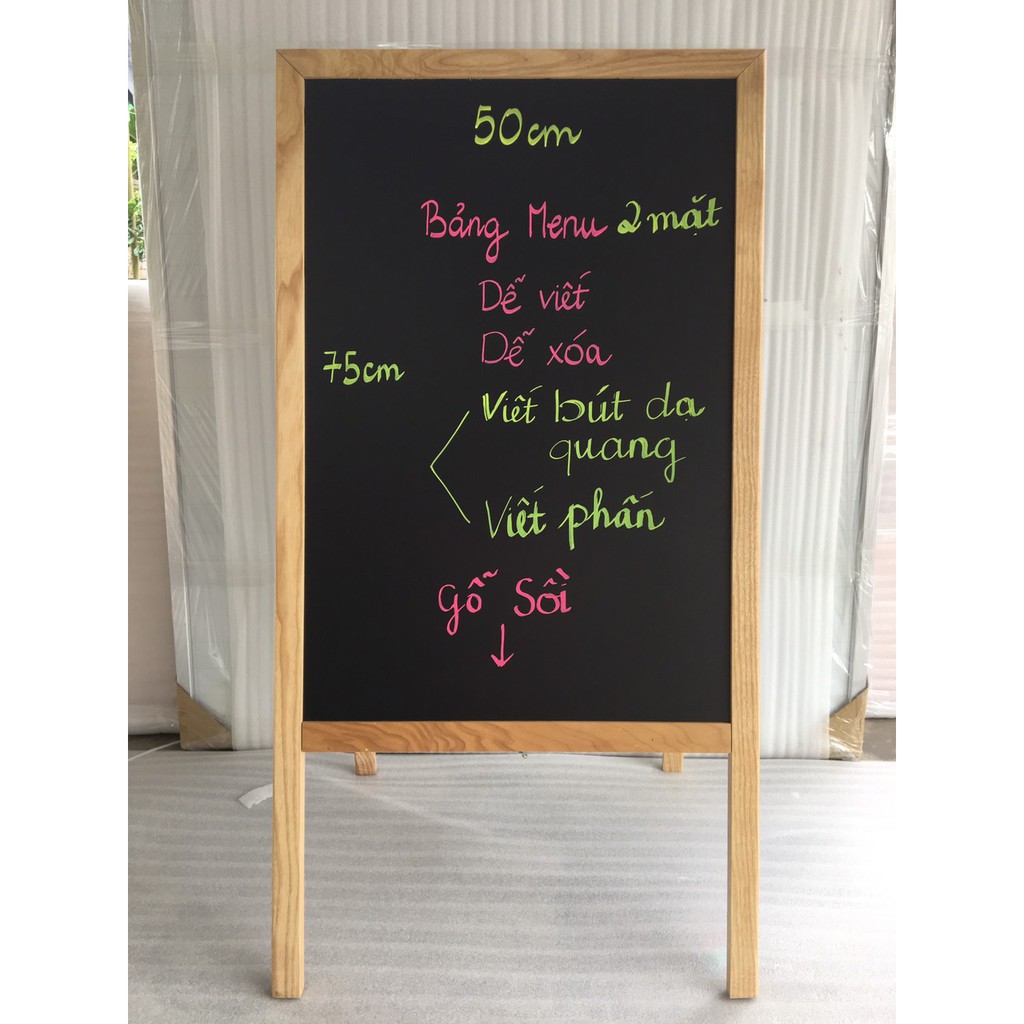 50cm
Bảng Menu 2 mặt
Dễ viết
Dễ xóa
75cm
Viết bút dạ
quang
Viết phấn
Gỗ Sồi